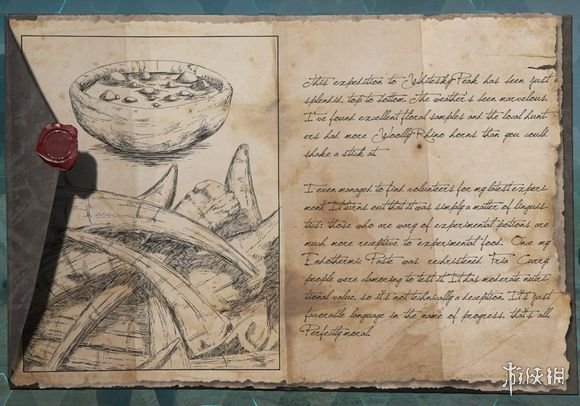 This expedition to Whitesky Peak has been just
splendid, top to bottom. The weather's been marvelous,
I've found excellent floral samples and the local hunt
ers had more Woolly Rhino horns than you could
shake a stick at.
I even managed to find volunteers for my latest exper
ment. It turns out that it was simply a matter of linguis
tics: those who are wary of experimental potions are
much more receptive to experimental food. Once my
Endothermic Paste was rechristened Fria Curry
people were clamoring to test it. It has moderate nutri
tional value, so it's not technically a deception. It's just
favorable language in the name of progress, that's all.
Perfectly moral.
游侠网